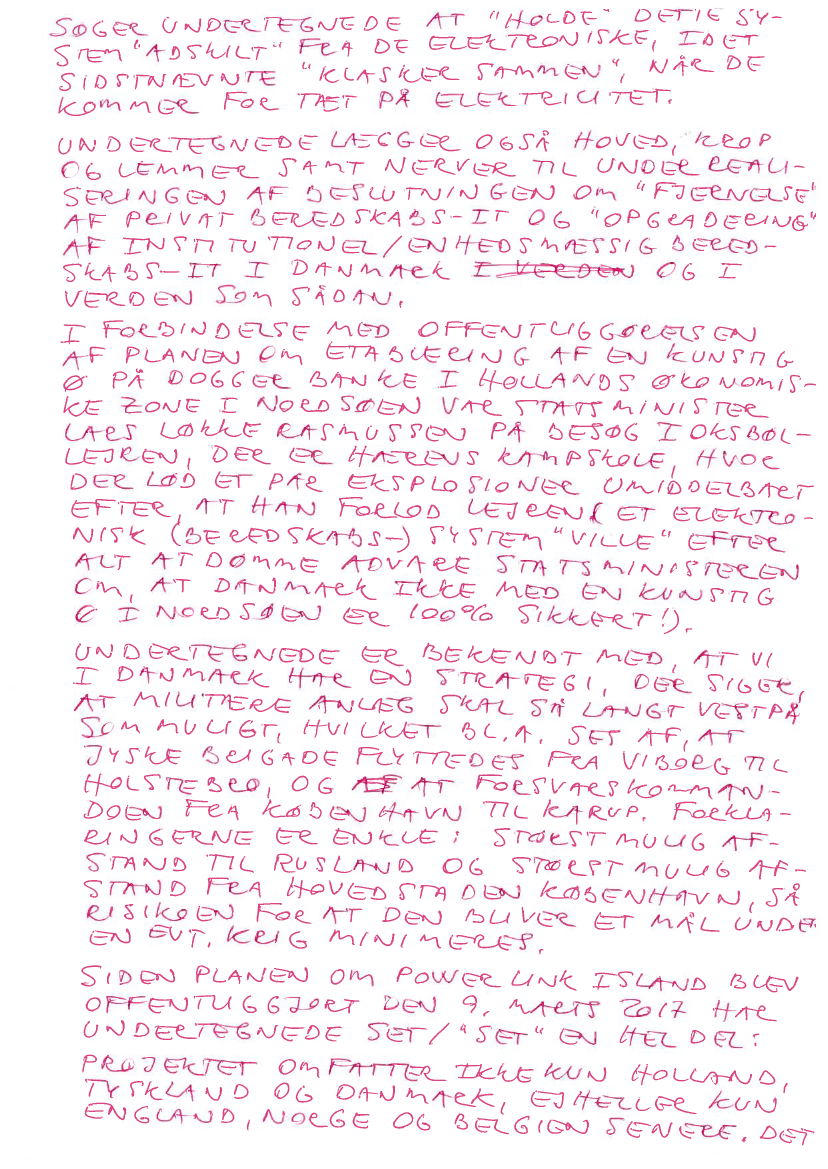 SØGER UNDERTEGNEDE AT "HOLDE" DETTE SY-
STEM "ADSKILT" FRA DE ELEKTRONISKE, IDET
SIDSTNÆVNTE "KLASKER SAMMEN", NÅR DE
KOMMER FOR TÆT PÅ ELEKTRICITET.
UNDERTEGNEDE LÆGGER OGSÅ HOVED, KROP
OG LEMMER SAMT NERVER TIL UNDERREALI-
SERINGEN AF BESLUTNINGEN OM "FJERNELSE"
AF PRIVAT BEREDSKABS-IT OG "OPGRADERING"
AF INSTITUTIONEL/ENHEDSMÆSSIG BERED-
SKABS-IT I DANMARK I VERDEN OG I
VERDEN SOM SÅDAN.
I FORBINDELSE MED OFFENTLIGGØRELSEN
AF PLANEN OM ETABLERING AF EN KUNSTIG
Ø PÅ DOGGER BANKE I HOLLANDS ØKONOMIS-
KE ZONE I NORDSØEN VAR STATSMINISTER
LARS LØKKE RASMUSSEN PÅ BESØG I OKSBØL-
LEJREN, DER ER HÆRENS KAMPSKOLE, HVOR
DER LØD ET PAR EKSPLOSIONER UMIDDELBART
EFTER, AT HAN FORLOD LEJREN (ET ELEKTRO-
NISK (BEREDSKABS-) SYSTEM "VILLE" EFTER
ALT AT DØMME ADVARE STATSMINISTEREN
OM, AT DANMARK IKKE MED EN KUNSTIG
Ø I NORDSØEN ER 100% SIKKERT!).
UNDERTEGNEDE ER BEKENDT MED, AT VI
I DANMARK HAR EN STRATEGI, DER SIGER,
AT MILITÆRE ANLÆG SKAL SÅ LANGT VESTPÅ
SOM MULIGT, HVILKET BL.A. SES AF, AT
JYSKE BRIGADE FLYTTEDES FRA VIBORG TIL
HOLSTEBRO, OG AF AT FORSVARSKOMMAN-
DOEN FRA KØBENHAVN TIL KARUP. FORKLA-
RINGERNE ER ENKLE: STØRST MULIG AF-
STAND TIL RUSLAND OG STØRST MULIG AF-
STAND FRA HOVEDSTADEN KØBENHAVN, SÅ
RISIKOEN FOR AT DEN BLIVER ET MÅL UNDER
EN EVT. KRIG MINIMERES.
SIDEN PLANEN OM POWER LINK ISLAND BLEV
OFFENTLIGGJORT DEN 9. MARTS 2017 HAR
UNDERTEGNEDE SET/"SET" EN HEL DEL:
PROJEKTET OMFATTER IKKE KUN HOLLAND,
TYSKLAND OG DANMARK, EJ HELLER KUN
ENGLAND, NORGE OG BELGIEN SENERE. DET